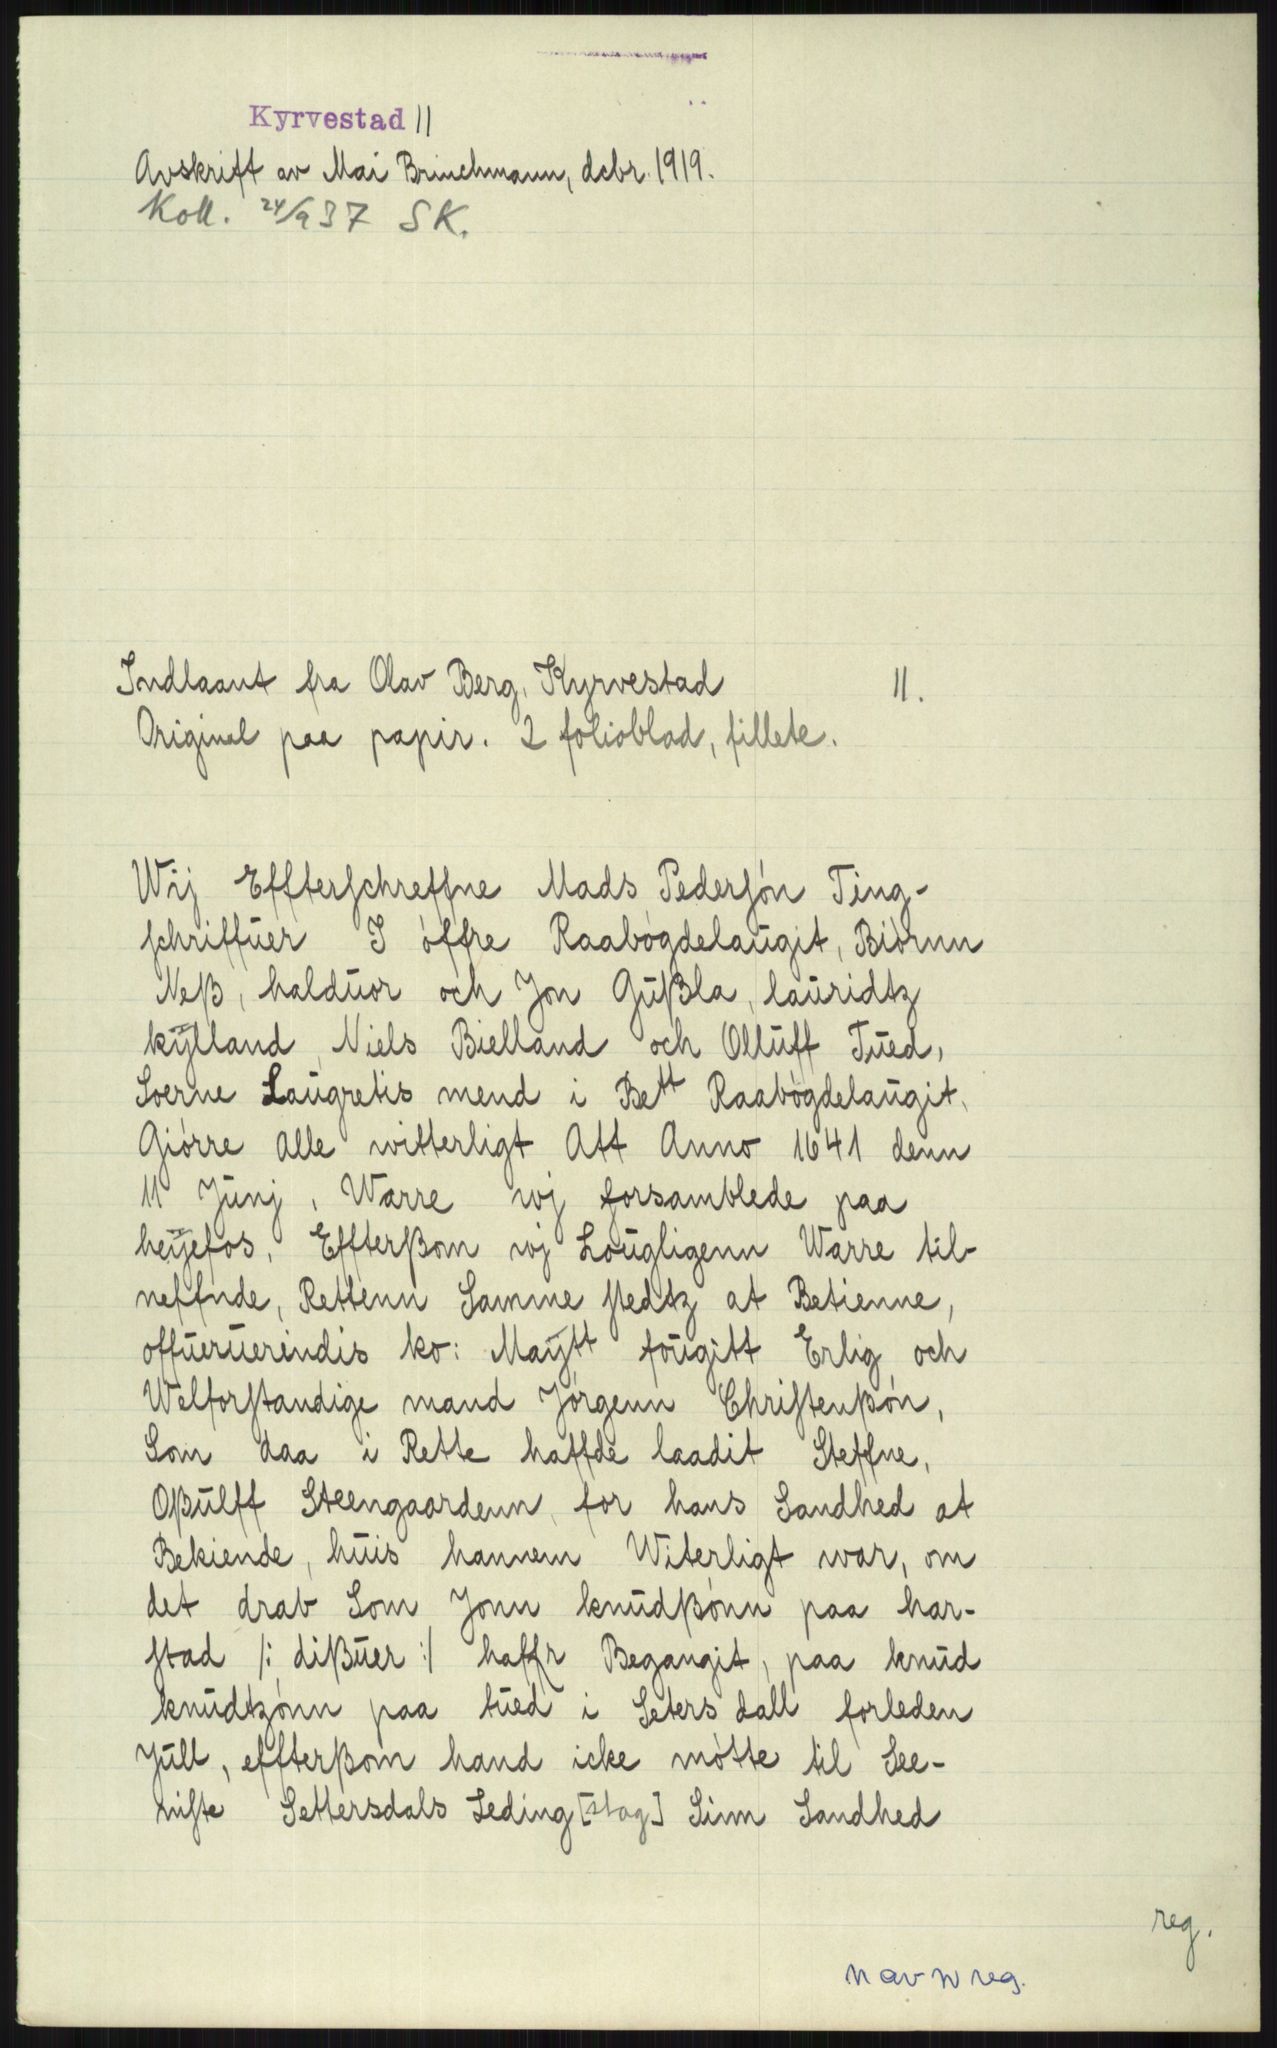 Kyrvestad 11
Avskrift av Mai Brinchmann, dcbr. 1919.
Koll. 24/9 37 SK.
Indlaant fra Olav Berg, Kyrvestad 11.
Original paa papir. 2 folioblad, fillete.
Wij Effterschreffne Mads Pedersón Ting-
schriffuer I óffre Raabógdelaugit, Biórnn
Neß, halduor och Jon Gußla, lauridtz
kÿlland, Niels Bielland och Olluff Tued,
Soerne Laugretis mend i Bett Raabógdelaugit,
Giórre Alle witterligt Att Anno 1641 denn
11 Junj, Warre wj forsamblede paa
heÿefos, Effterßom wj Lougligenn Warre til-
neffnde, Rettenn Samme stedtz at Betienne,
offueruerindis ko: Maÿtt fougitt Erlig och
Welforstandige mand Jórgenn Christenßón,
Som daa i Rette haffde laadit Steffne,
Oßulff Steengaardenn, for hans Sandhed at
Bekiende, huis hannem Witerligt war, om
det drab Som Jonn knudßónn paa har-
stad /: dißuer :/ haffr Begangit, paa knud
knudtzónn paa tued i Seters dall forleden
Jull, effterßom hand icke mótte til See-
niste Settersdals Leding [stag] Sinn Sandhed
reg.
navnreg.